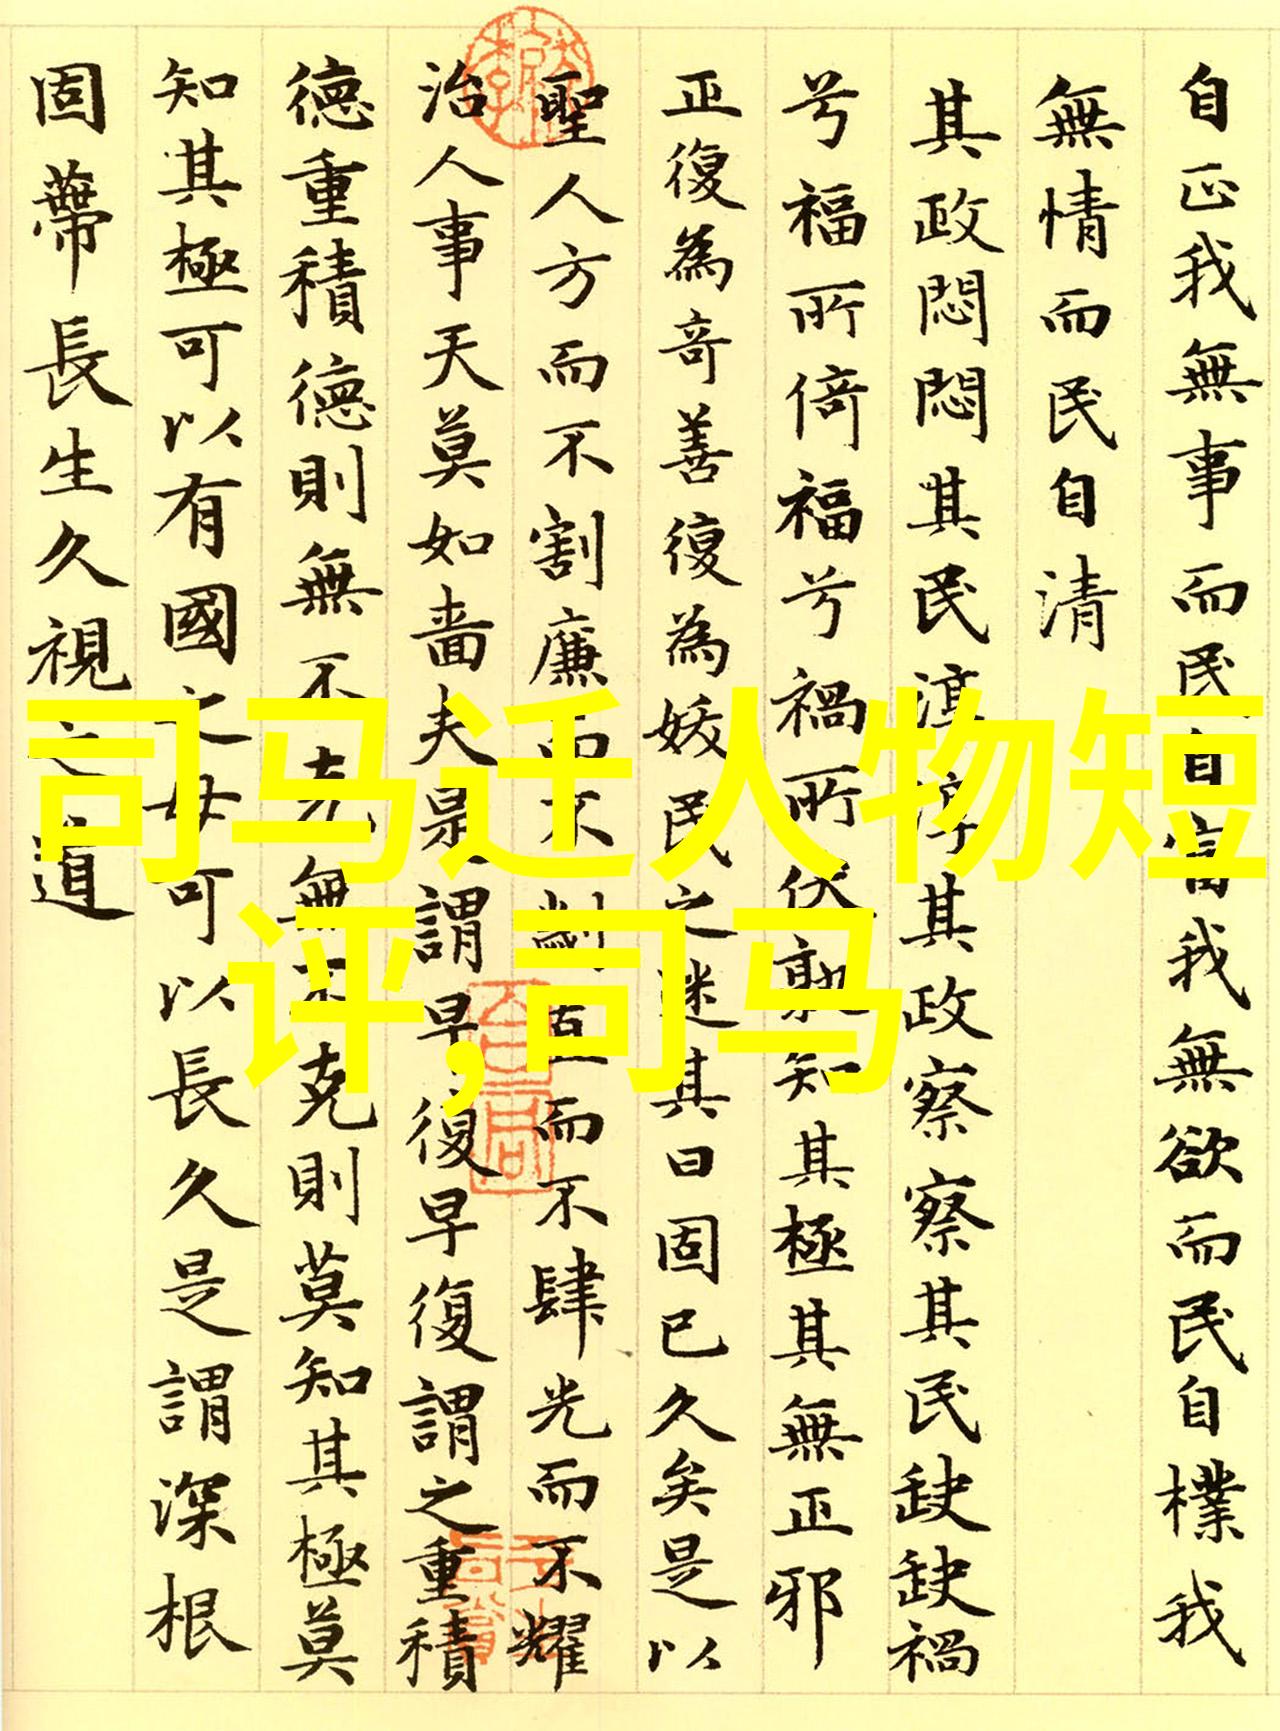 自正我無事而民自富我無欲而民自樸我
無情而民自清
其政悶悶其民淳淳其政察察其民缺缺禍
兮福所倚福兮禍所伏孰知其極其無正邪
正復為奇善復為妖民之迷其日固已久矣是以
聖人方而不割廉而不劌直而不肆光而不耀
治人事天莫如嗇夫是謂早復早復謂之重積
德重積德則無不克無不克則莫知其極莫
知其極可以有國之母可以長久是謂深根
固蔕長生久視之道
司马迁人物短
评,司马